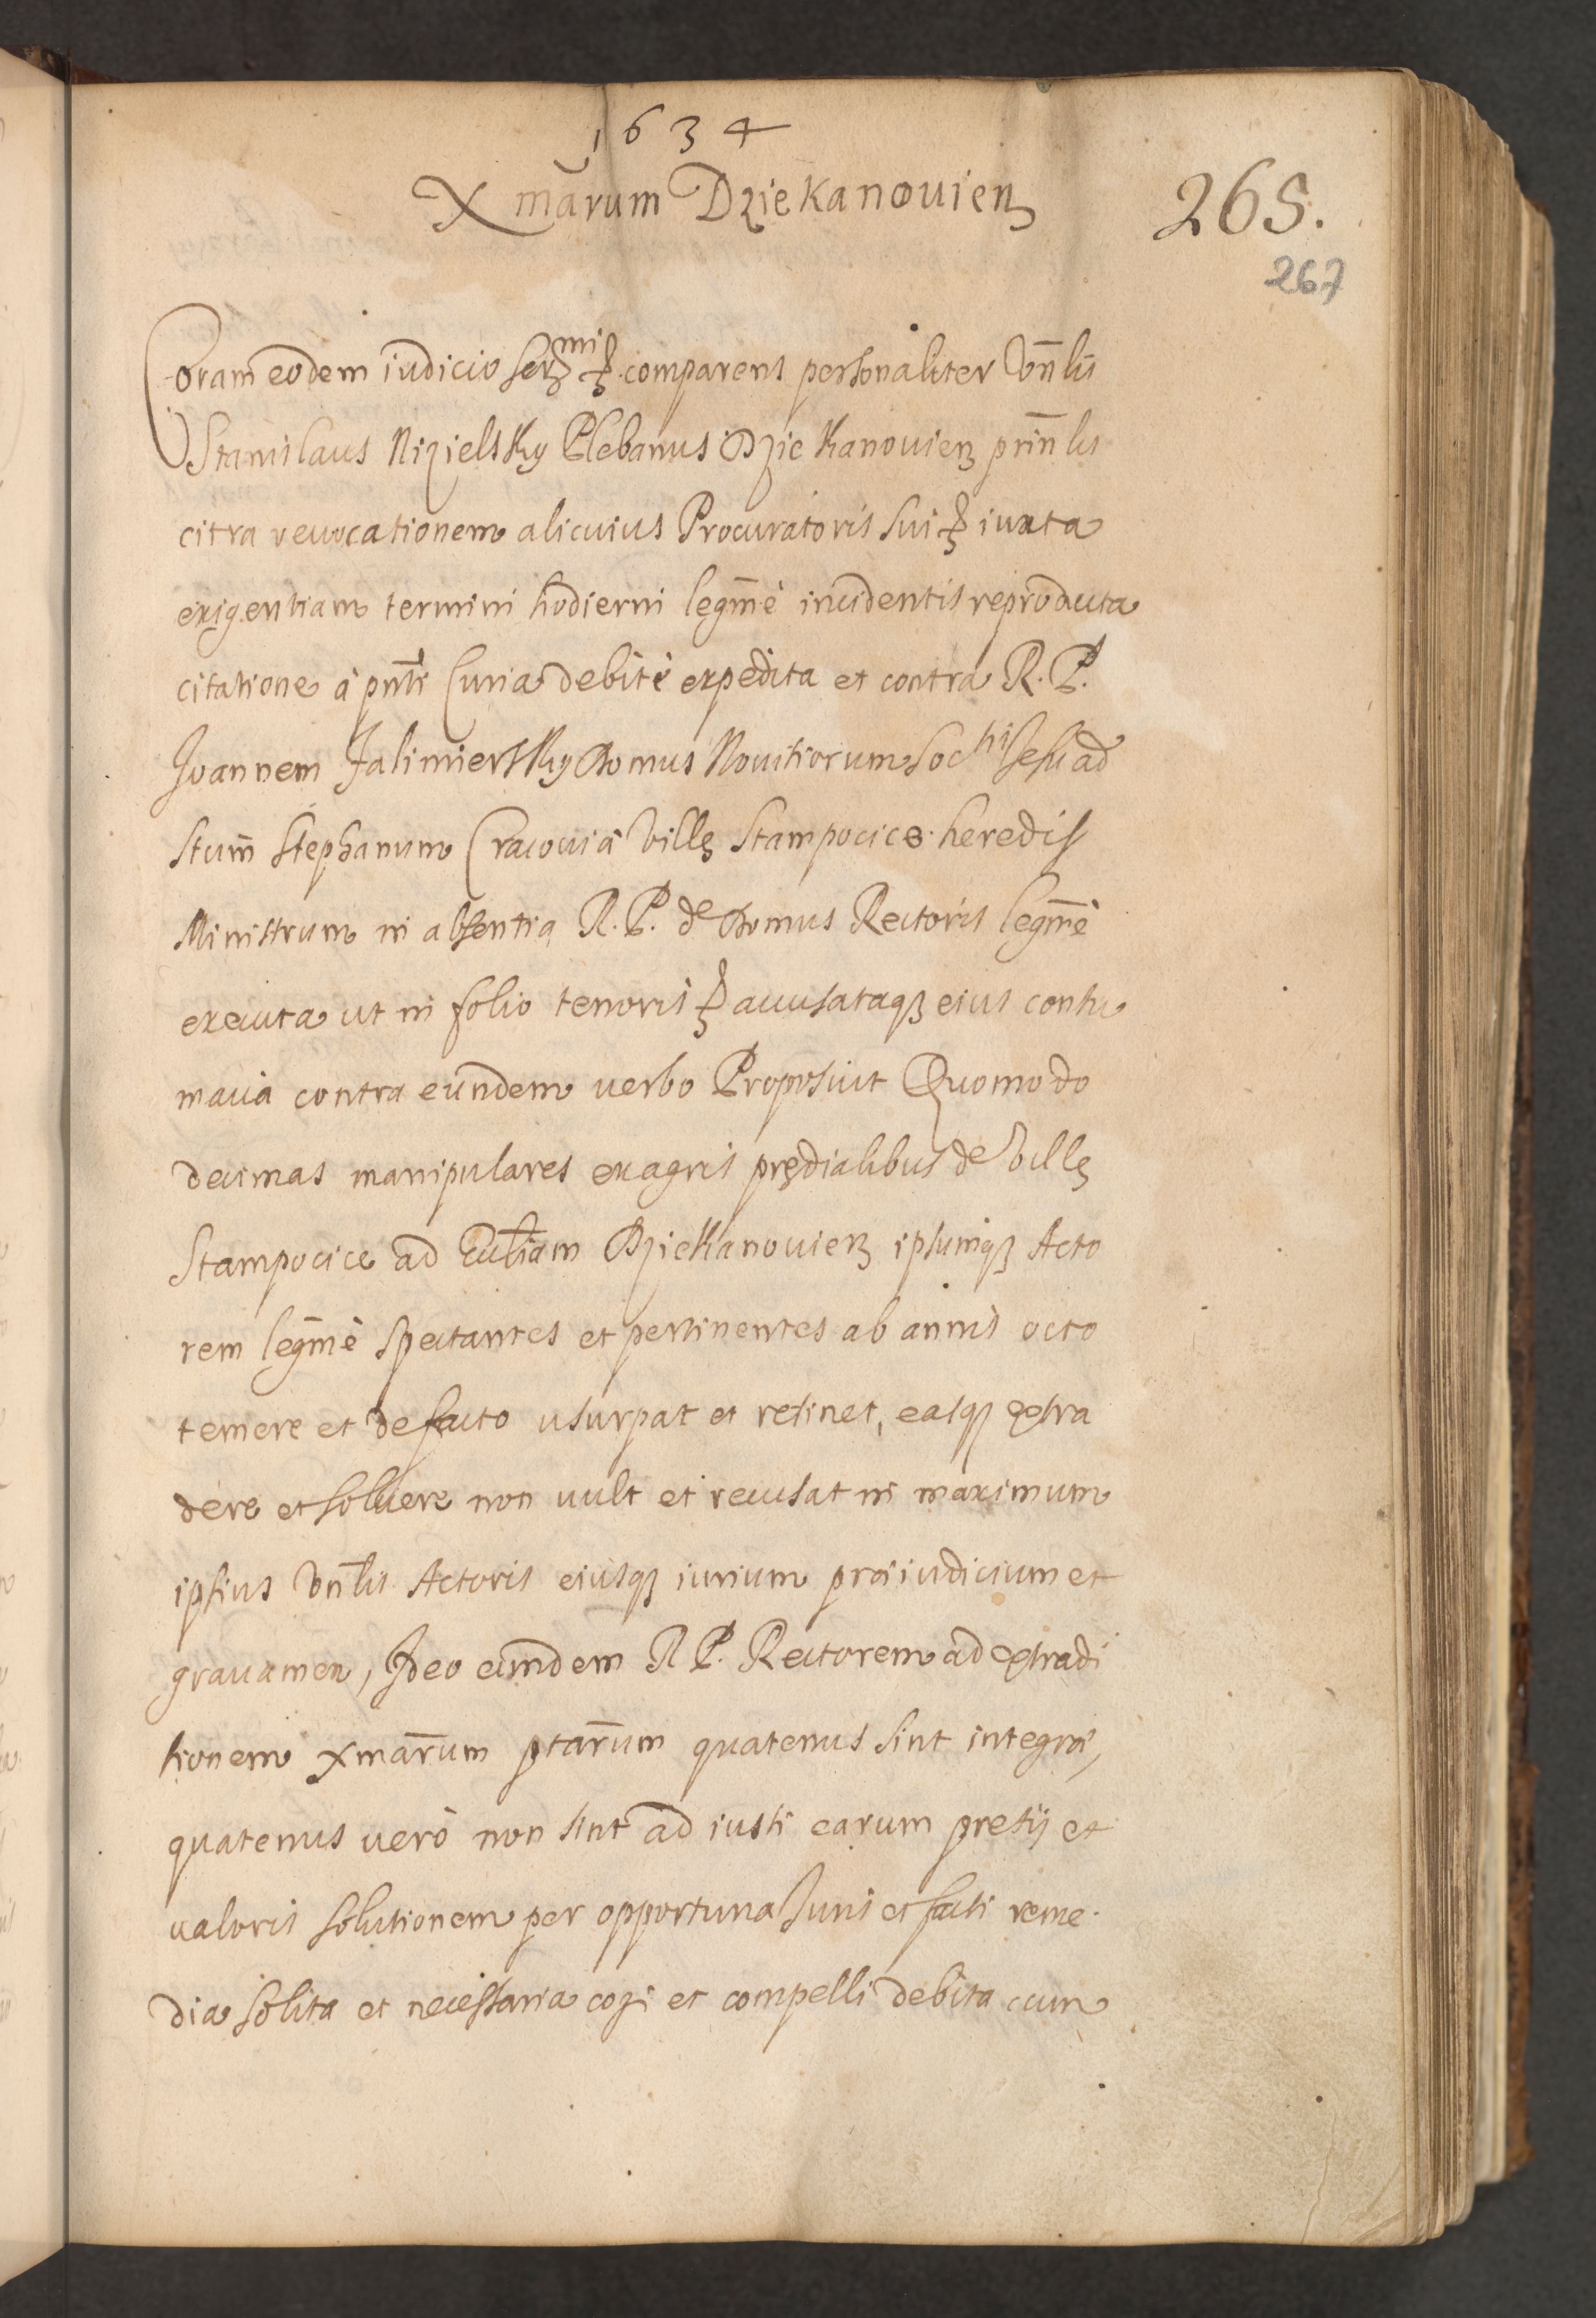 1634
X marum Dziekanouien
265.
267
Coram eodem iudicio Ser mi comparens personaliter Vnlis
Stanislaus Nizielsky Plebanus Dziekanouien prinlis
citra reuocationem alicuius Procuratoris sui iuxta
exigentiam termini hodierni legme incidentis reproducta
citatione à pnti Curia debitè expedita et contra R. P.
Joannem Jalimiersky Domus Nouitiorum Soctis Jesu ad
Stum Stephanum Cracouiæ villę Stampocice heredis
Ministrum in absentia R. P. de Domus Rectoris legmè
executa ut in folio tenoris accusataq eius contu
macia contra eundem verbo Proposuit Quomodo
decimas manipulares ex agris prędialibus de villę
Stampocice ad Ecctiam Dziekanouien ipsumq Acto
rem legmè spectantes et pertinentes ab annis octo
temere et de facto usurpat et retinet, easq extra
dere et soluere non uult et recusat in maximum
ipsius Vnlis Actoris eiusq iurium præiudicium et
grauamen, Ideo eundem R P. Rectorem ad extradi
tionem Xmarum ptarum quatenus sint integræ,
quatenus uerò non sint ad iusti earum pretij et
ualoris solutionem per opportuna Juris et facti reme
dia solita et necessaria cogi et compelli debita cum